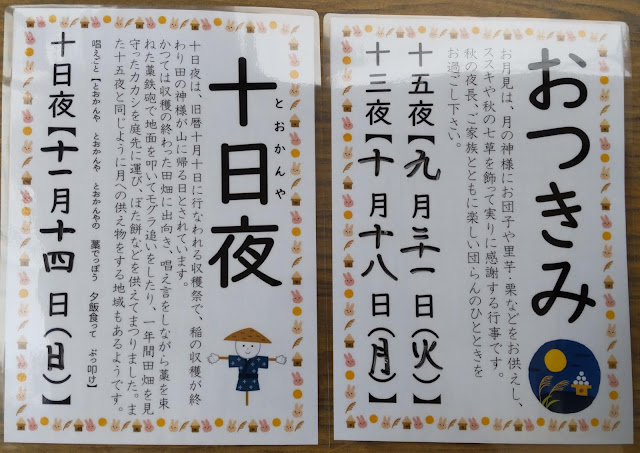 おつきみ
お月見は、月の神様にお団子や里芋・栗などをお供えし、
ススキや秋の七草を飾って実りに感謝する行事です。
秋の夜長、ご家族とともに楽しい団らんのひとときを
お過ごし下さい。
十五夜【九月二十一日(火)】
十三夜【十月十八日(月)】
十日夜
とおかんや
十日夜は、旧暦十月十日に行なわれる収穫祭で、稲の収穫が終
わり田の神様が山に帰る日とされています。
かつては収穫の終わった田畑に出向き、唱え言をしながら藁を束
ねた藁鉄砲で地面を叩いてモグラ追いをしたり、一年間田畑を見
守ったカカシを庭先に運び、ぼた餅などを供えてまつりました。ま
た十五夜と同じように月への供え物をする地域もあるようです。
唱えごと【とおかんや とおかんや とおかんやの 藁でっぽう 夕飯食って ぶっ叩け】
十日夜【十一月十四日(日)】